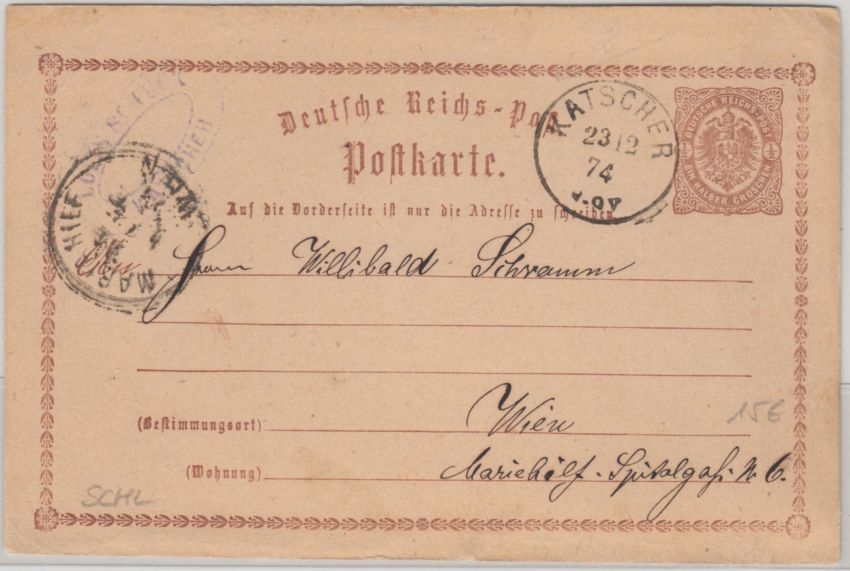 Deutsche Reichs-Post
Postkarte.
KATSCHER
23 12
74
DEUTSCHE REICHS-POST
½ ½
EIN HALBER GROSCHEN
Auf die Vorderseite ist nur die Adresse zu schreiben.
An Herrn Willibald Schramm
(Bestimmungsort) Wien
15€
(Wohnung) Mariehilf. Spitalgaß. N. 6.
SCHL